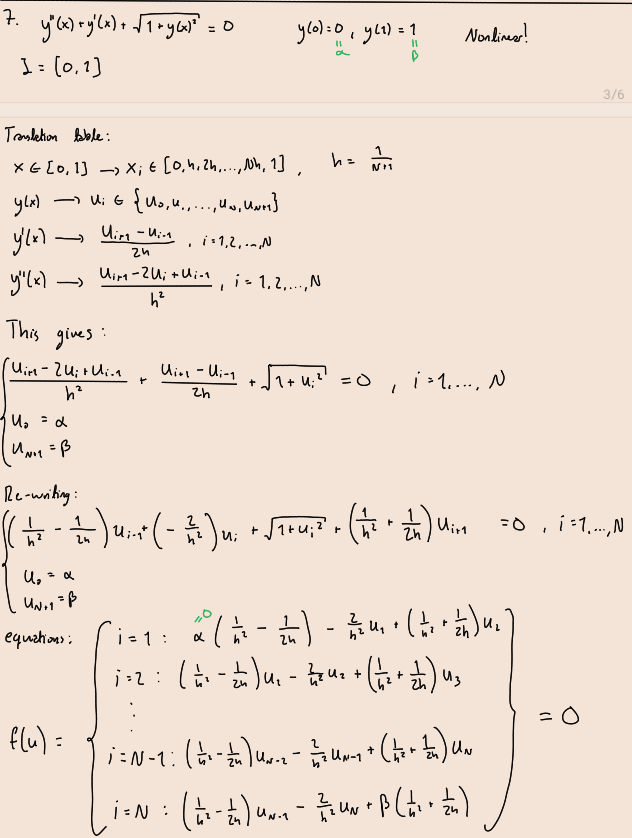 7. y''(x) + y'(x) + √(1 + y(x)²) = 0    y(0) = 0, y(1) = 1    Nonlinear!
= α    = β
I = [0, 1]
3/6
Translation table:
x ∈ [0,1] → xᵢ ∈ [0, h, 2h, ..., Nh, 1], h = 1/(N+1)
y(x) → uᵢ ∈ {u₀, u₁, ..., u_N, u_{N+1}}
y'(x) → (u_{i+1} - u_{i-1})/(2h), i = 1, 2, ..., N
y''(x) → (u_{i+1} - 2uᵢ + u_{i-1})/h², i = 1, 2, ..., N
This gives:
{ (u_{i+1} - 2uᵢ + u_{i-1})/h² + (u_{i+1} - u_{i-1})/(2h) + √(1 + uᵢ²) = 0, i = 1, ..., N
u₀ = α
u_{N+1} = β
Re-writing:
{ (1/h² - 1/(2h)) u_{i-1} + (-2/h²) uᵢ + √(1 + uᵢ²) + (1/h² + 1/(2h)) u_{i+1} = 0, i = 1, ..., N
u₀ = α
u_{N+1} = β
= 0
equations: { i = 1: α (1/h² - 1/(2h)) - 2/h² u₁ + (1/h² + 1/(2h)) u₂
i = 2: (1/h² - 1/(2h)) u₁ - 2/h² u₂ + (1/h² + 1/(2h)) u₃
⋮
f(u) = { } = 0
i = N-1: (1/h² - 1/(2h)) u_{N-2} - 2/h² u_{N-1} + (1/h² + 1/(2h)) u_N
i = N: (1/h² - 1/(2h)) u_{N-1} - 2/h² u_N + β (1/h² + 1/(2h))